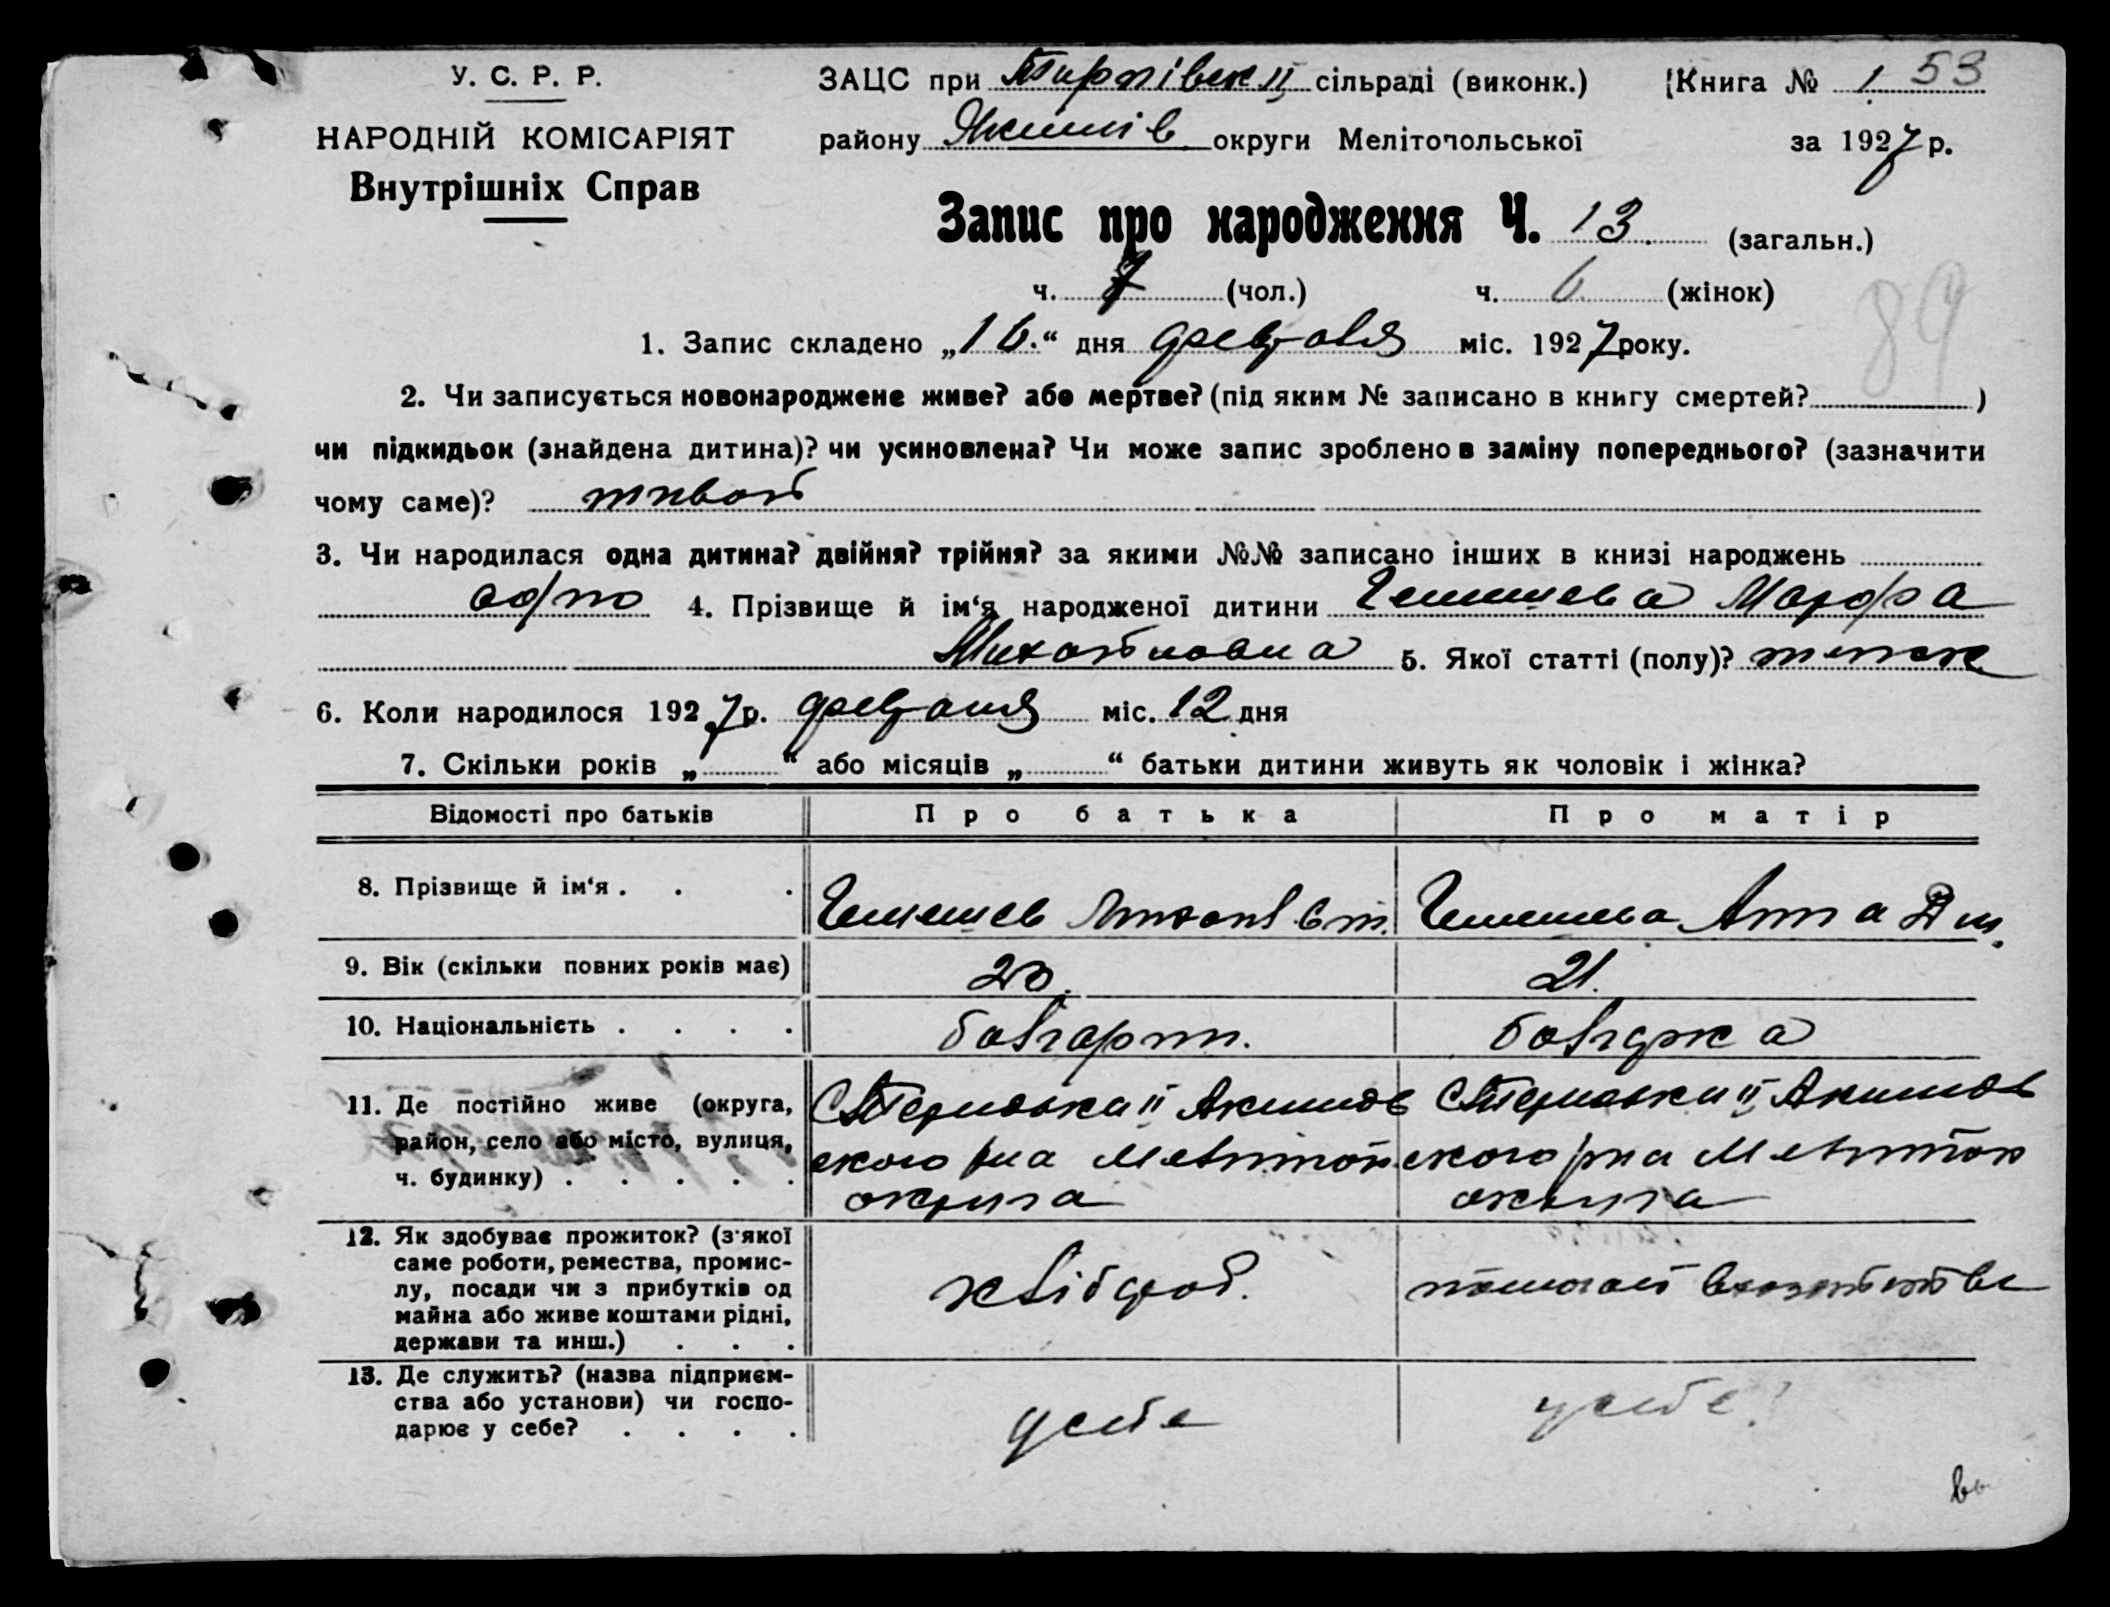 У. С. Р. Р.
НАРОДНІЙ КОМІСАРІЯТ
Внутрішніх Справ
ЗАЦС при сільраді (виконк.) Книга № 1 53
району Якимів округи Мелітопольської за 1927 р.
Запис про народження Ч. 13. (загальн.)
ч. 7 (чол.) ч. 6 (жінок)
89
1. Запис складено „16.“ дня февраля міс. 1927 року.
2. Чи записується новонароджене живе? або мертве? (під яким № записано в книгу смертей? )
чи підкидьок (знайдена дитина)? чи усиновлена? Чи може запис зроблено в заміну попереднього? (зазначити
чому саме)? живой
3. Чи народилася одна дитина? двійня? трійня? за якими №№ записано інших в книзі народжень
одно 4. Прізвище й ім‘я народженої дитини Марфа
Михайловна 5. Якої статті (полу)? женск
6. Коли народилося 1927 р. февраля міс. 12 дня
7. Скільки років „ “ або місяців „ “ батьки дитини живуть як чоловік і жінка?
Відомості про батьків Про батька Про матір
8. Прізвище й ім‘я . . . Анна
9. Вік (скільки повних років має) 21.
10. Національність . . . . болгарин. болгарка
11. Де постійно живе (округа, район, село або місто, вулиця, ч. будинку) . . . . .
Акимов
ского р-на Мелитоп
округа
Акимов
ского р-на Мелитоп
округа
12. Як здобуває прожиток? (з'якої саме роботи, ремества, промислу, посади чи з прибутків од майна або живе коштами рідні, держави та инш.) . . .
хлібороб. помогает в хозяйстве
13. Де служить? (назва підприємства або установи) чи господарює у себе? . . . .
у себе у себе